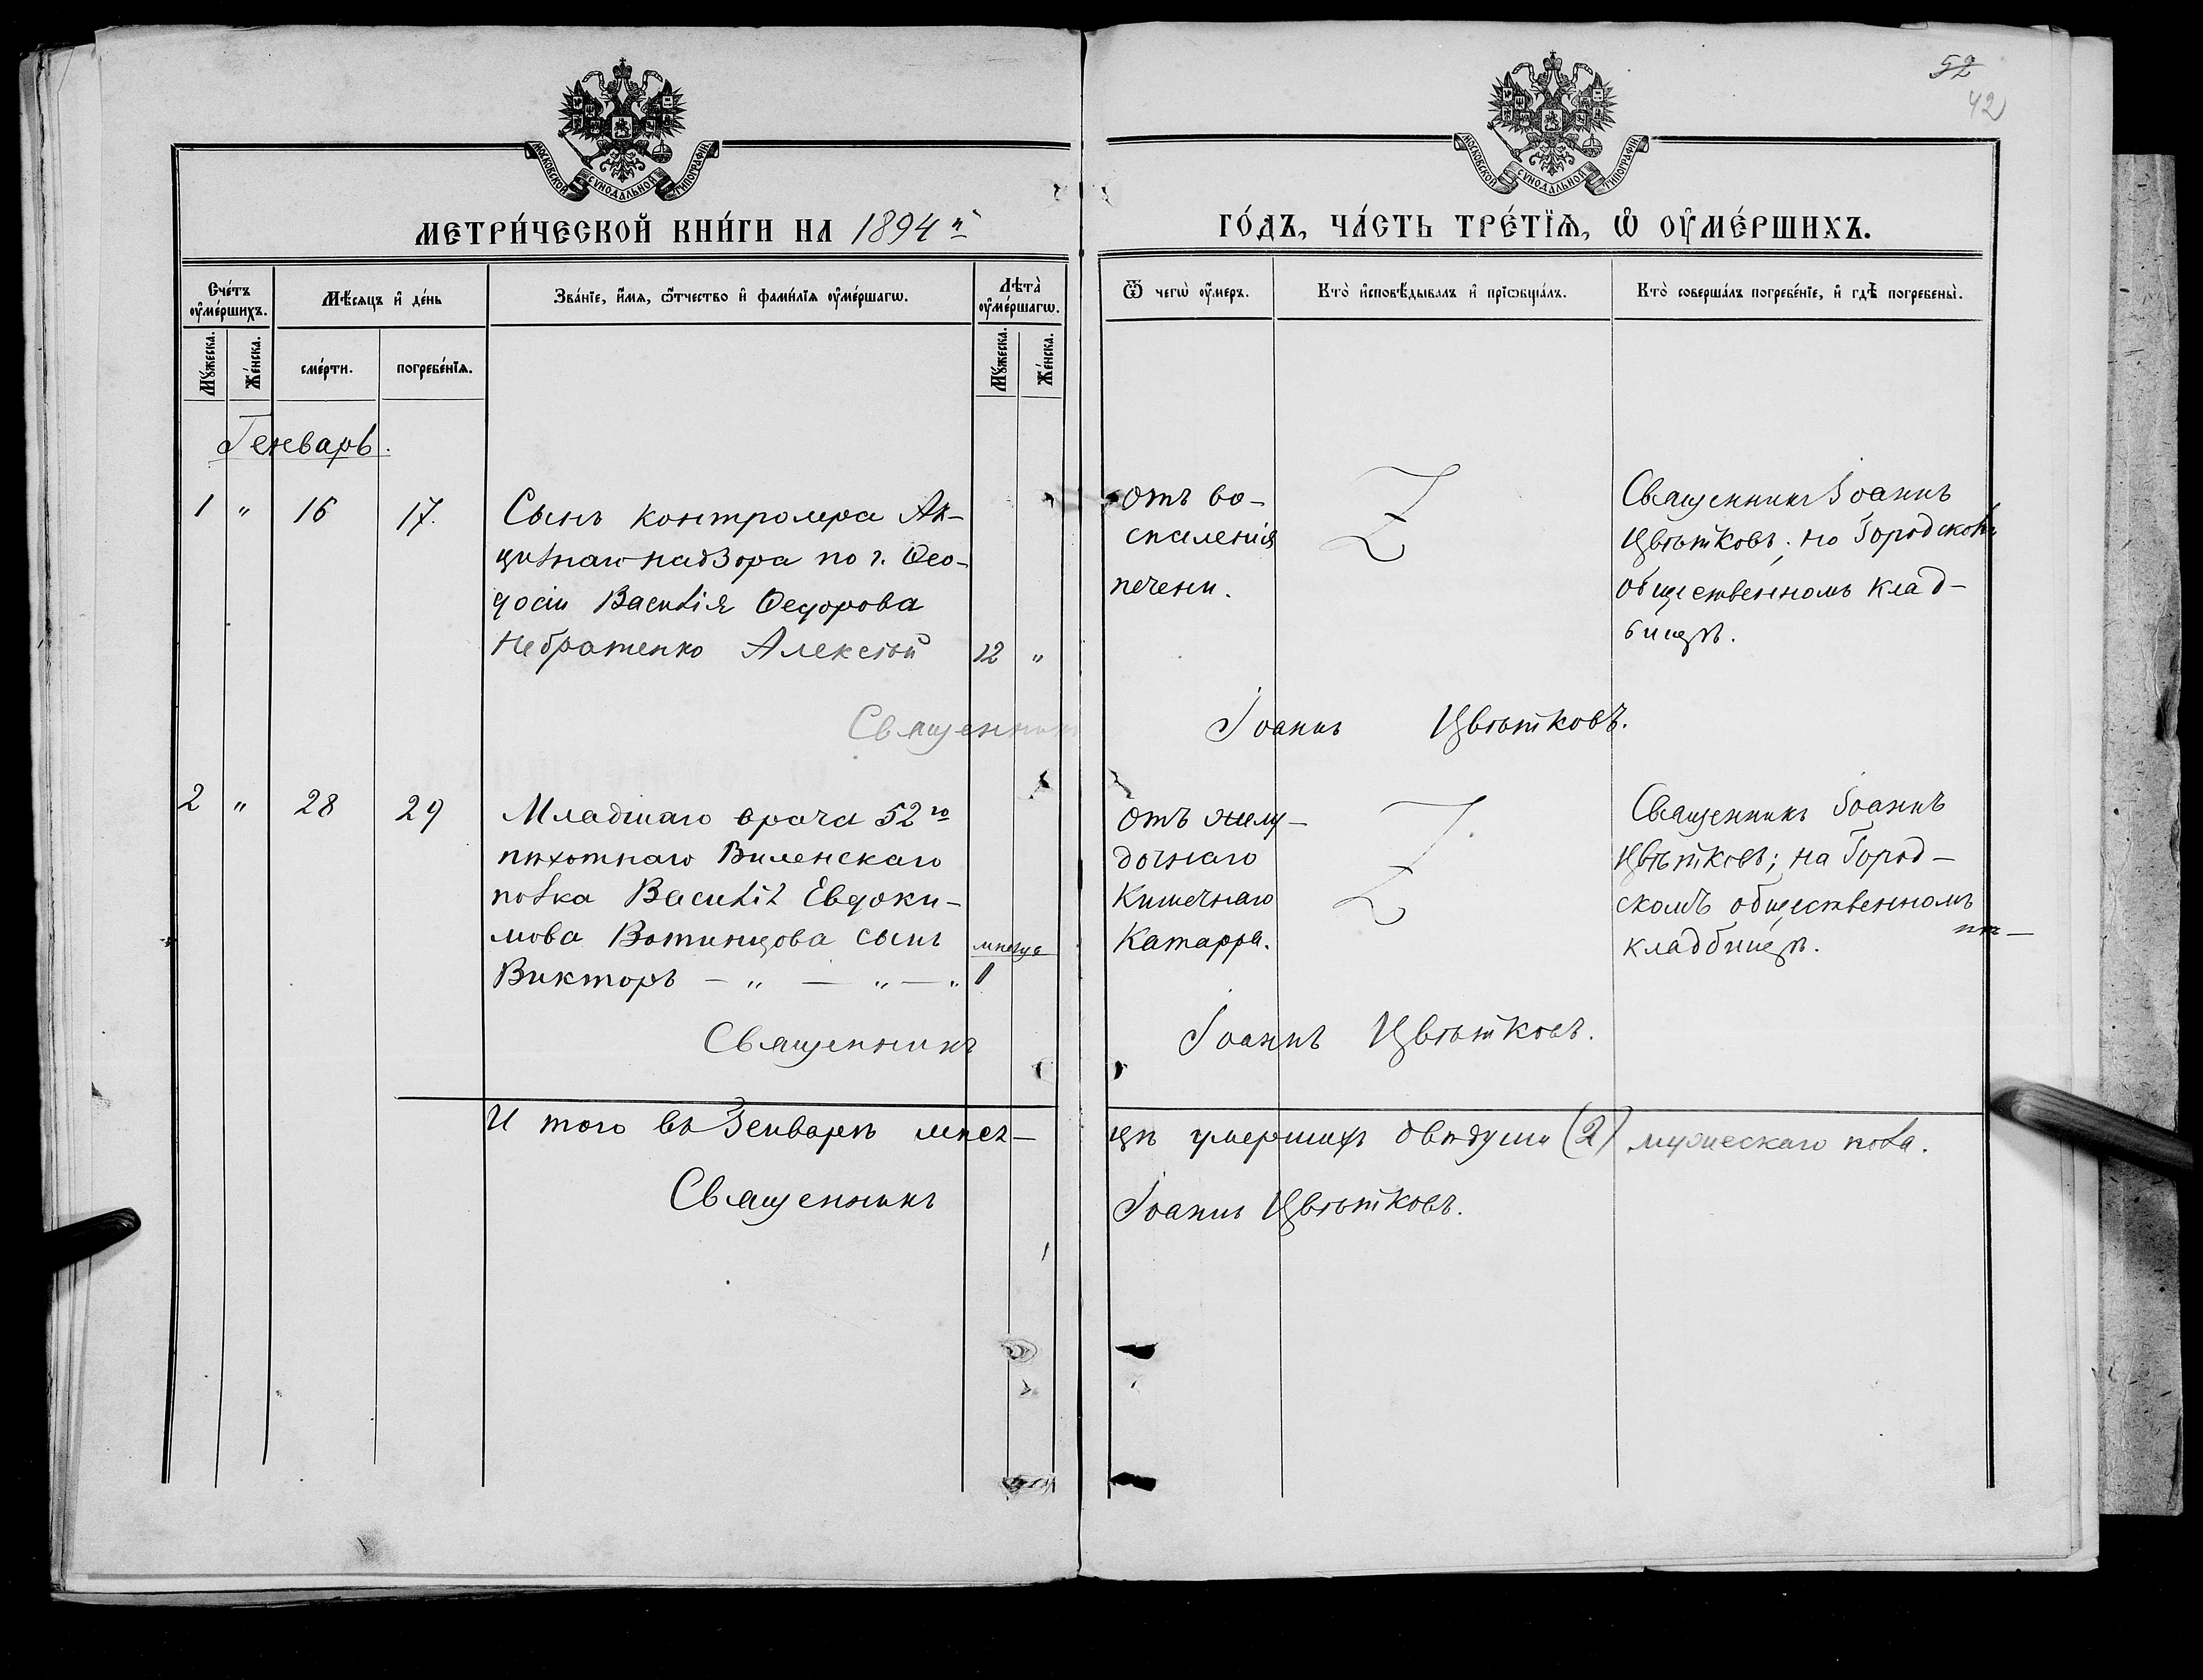 52
42
МОСКОВСКОЙ СУНОДАЛЬНОЙ ТИПОГРАФІИ
МОСКОВСКОЙ СУНОДАЛЬНОЙ ТИПОГРАФІИ
МЕТРИ́ЧЕСКОЙ КНИ́ГИ НА 1894 й
ГО́ДЪ, ЧА́СТЬ ТРЕ́ТІѦ, Ѡ҆ ОУ҆МЕ́РШИХЪ.
Сче́тъ оу҆ме́ршихъ.
Мꙋ́жеска.
Же́нска.
Мѣ́сяцъ и҆ де́нь
сме́рти.
погребе́нїѧ.
Зва́нїе, и҆́мѧ, ѻ҆́тчество и҆ фами́лїѧ оу҆ме́ршагѡ.
Лѣ̀та оу҆ме́ршагѡ.
Мꙋ́жеска.
Же́нска.
Ѿ чегѡ̀ оу҆́меръ.
Кто̀ и҆сповѣ́дывалъ и҆ прїѡбща́лъ.
Кто̀ соверша́лъ погребе́нїе, и҆ гдѣ̀ погребены̀.
Генварь.
1 " 16 17. Сынъ контролера Ак-
цизнаго надзора по г. Ѳео-
досіи Василія Ѳедорова
Небратенко Алексѣй 12 "
отъ во-
спаленія
печени.
Священникъ Іоаннъ
Цвѣтковъ; на Городскомъ
общественномъ клад-
бищѣ.
Священникъ Іоаннъ Цвѣтковъ.
2 " 28 29 Младшаго врача 52 го
пѣхотнаго Виленскаго
полка Василія Евдоки-
мова Вотинцова сынъ мѣсяцъ
Викторъ — " — " — " 1
отъ желу-
дочнаго
кишечнаго
катарра.
Священникъ Іоаннъ
Цвѣтковъ; на Город-
скомъ общественномъ
кладбищѣ.
Священникъ Іоаннъ Цвѣтковъ.
И того въ Генварѣ мѣся-
цѣ умершихъ двѣ души (2) мужескаго пола.
Священникъ Іоаннъ Цвѣтковъ.